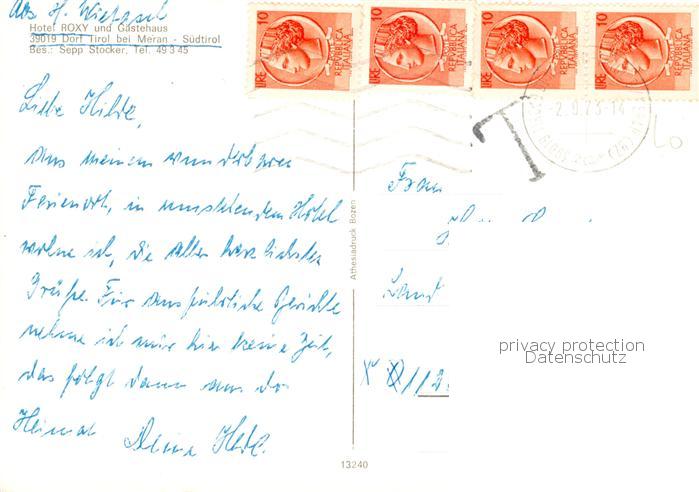 Abs. H.
Hotel ROXY und Gästehaus
39019 Dorf Tirol bei Meran - Südtirol
Bes.: Sepp Stocker, Tel. 49 3 45
10 LIRE REPVBBLICA ITALIANA
10 LIRE REPVBBLICA ITALIANA
10 LIRE REPVBBLICA ITALIANA
10 LIRE REPVBBLICA ITALIANA
T
Liebe Hilde,
aus meinem wunderbaren
Ferienort, in umstehendem Hotel
wohne ich, die aller herzlichsten
Grüße. Für ausführliche Berichte
nehme ich mir hier keine Zeit,
das folgt dann aus der
Heimat Deine
Frau
Athesiadruck Bozen
privacy protection
Datenschutz
13240